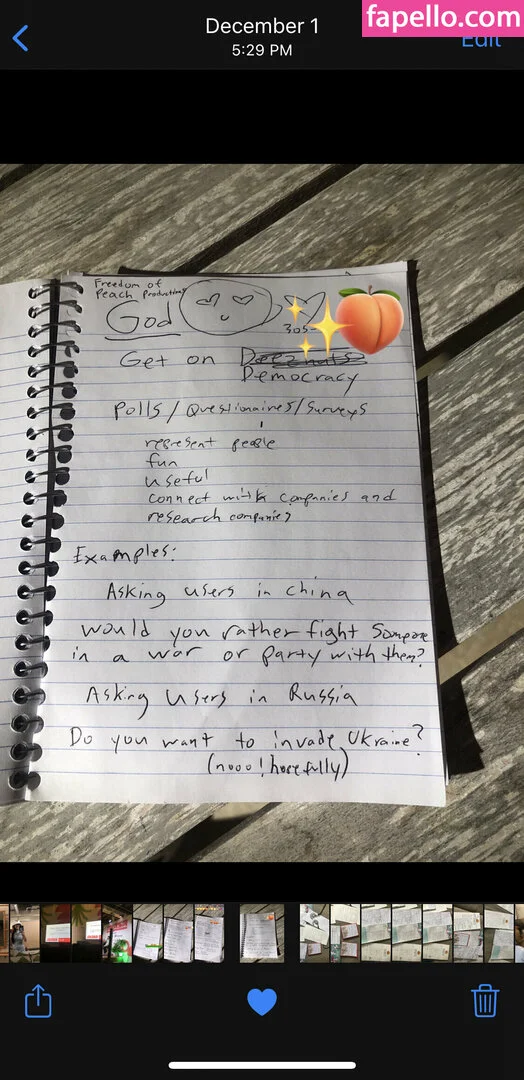 December 1
5:29 PM
fapello.com
Edit
Freedom of
Peach Productions
God
305-
Get on
Democracy
Polls/Questionaires/Surveys
represent people
fun
useful
connect with companies and
research companies
Examples:
Asking users in china
would you rather fight someone
in a war or party with them?
Asking users in Russia
Do you want to invade Ukraine?
(nooo! hopefully)